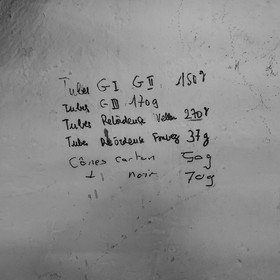 Tubes G I G II 150g
Tubes G III 170g
Tubes Retordeuse 270g
Tubes Retordeuse 37g
Cônes carton 50g
⊥ noir 70g